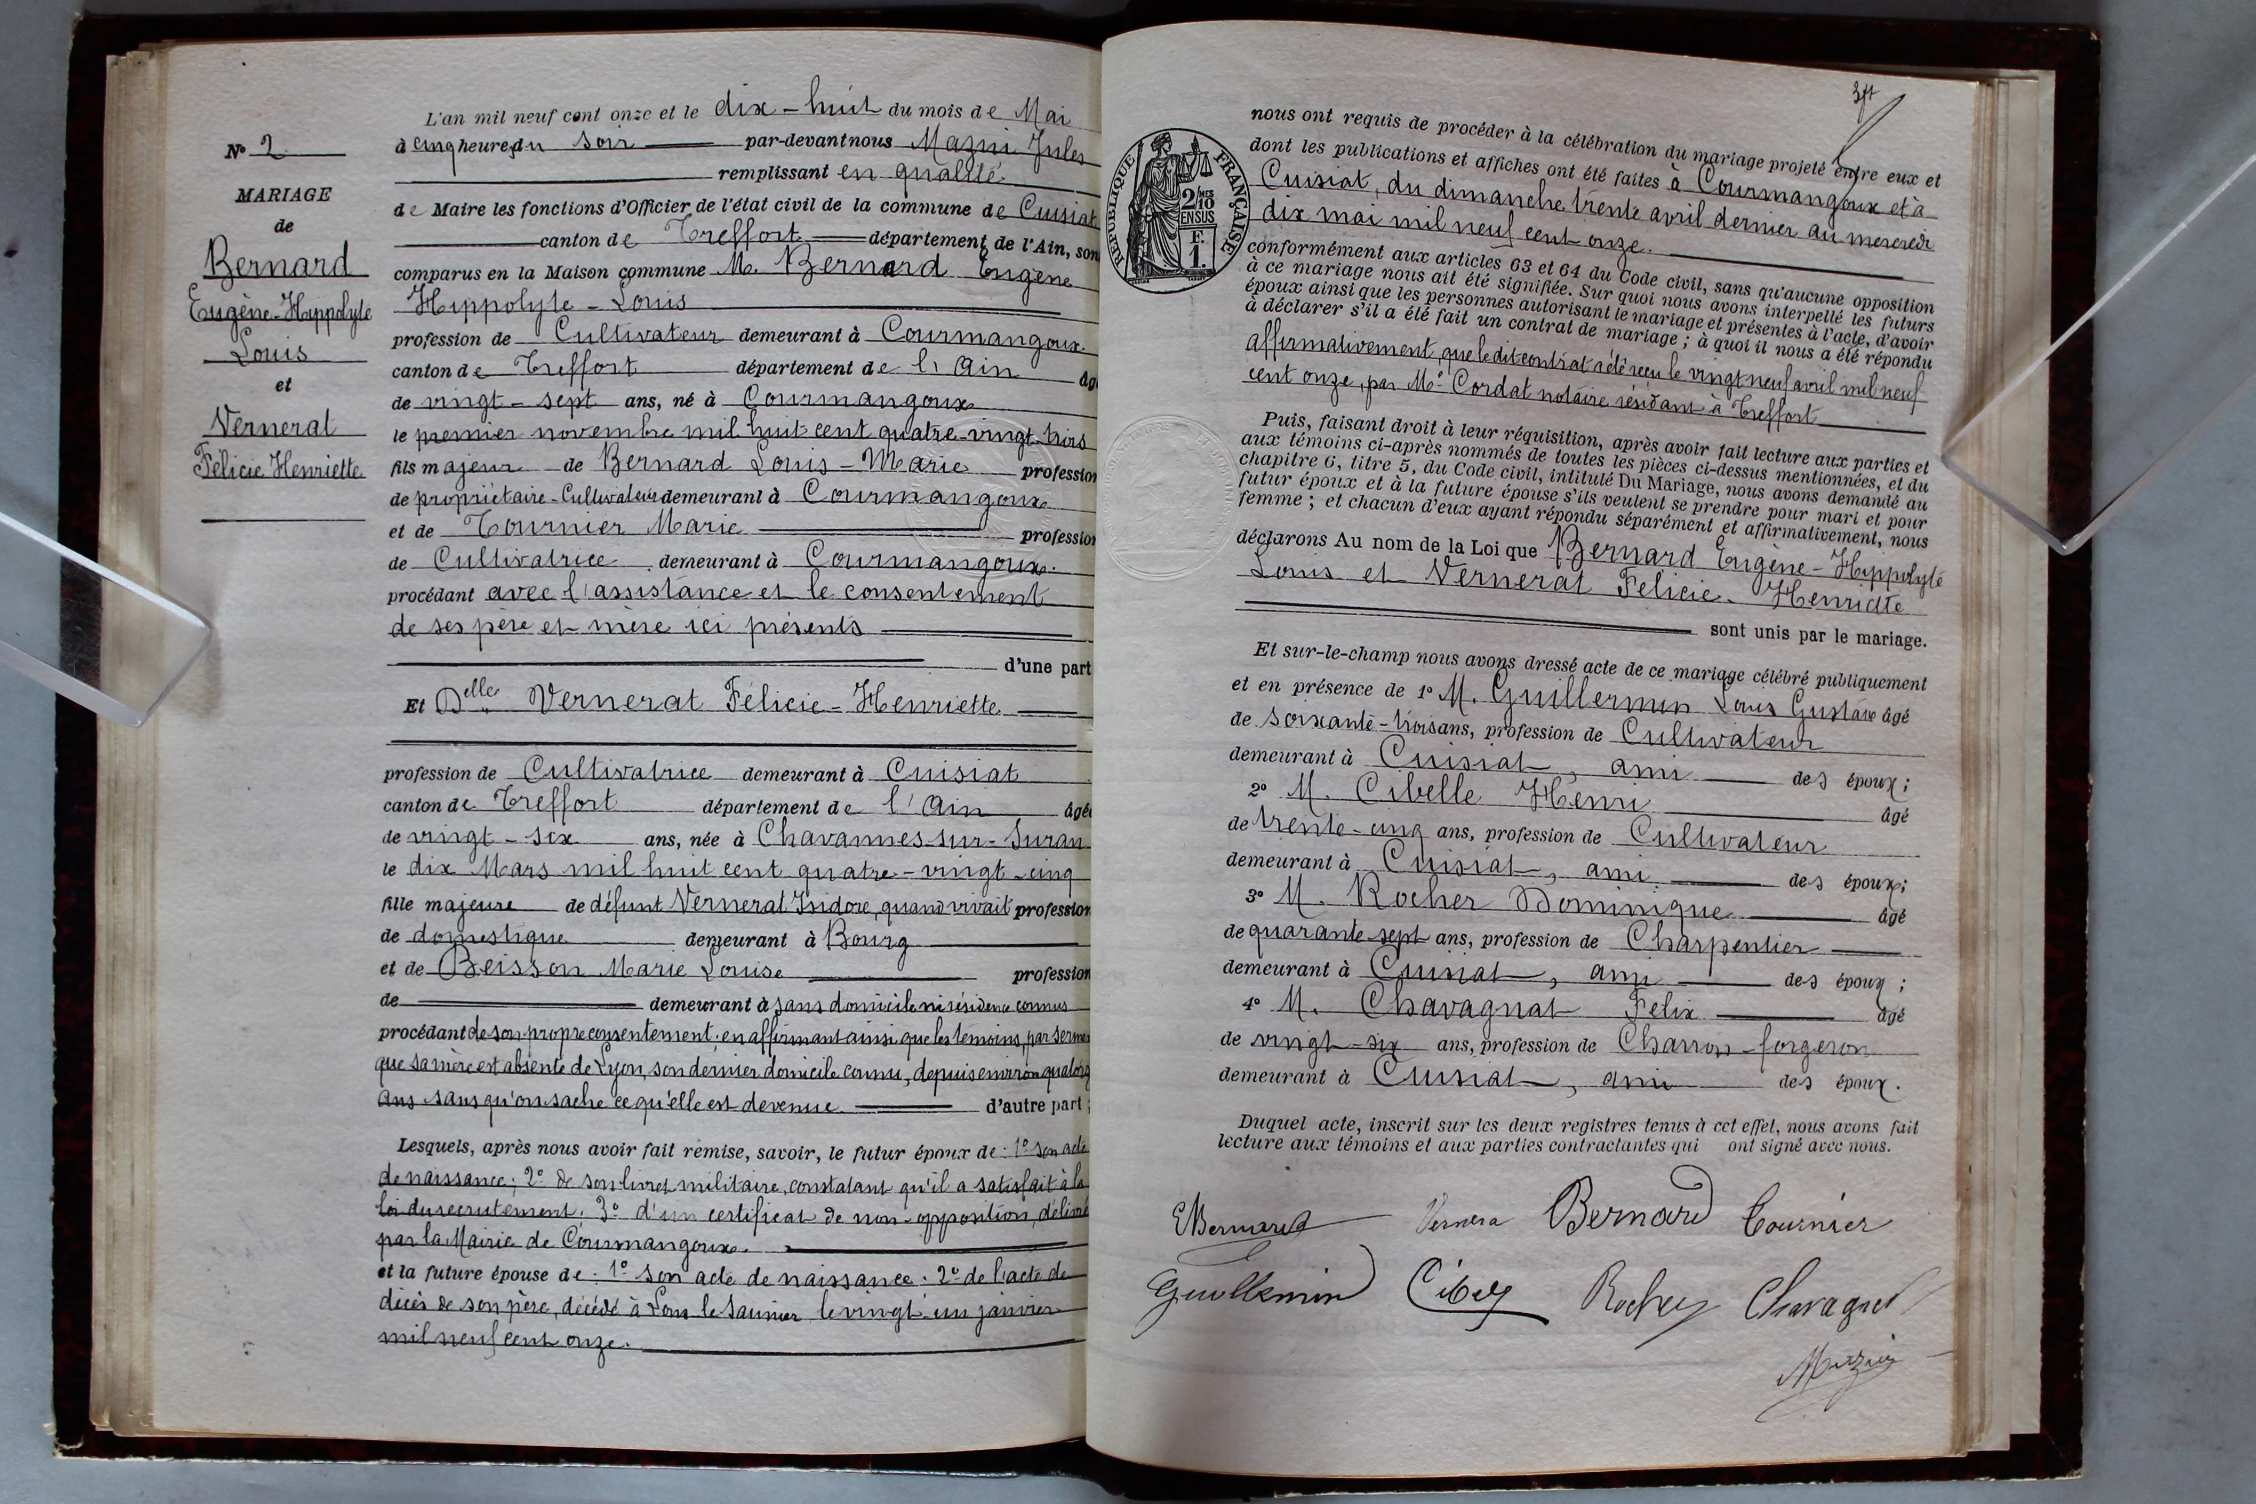 N° 2
MARIAGE
de
Bernard
Eugène-Hippolyte
Louis
et
Vernerat
Félicie Henriette
L'an mil neuf cent onze et le dix-huit du mois de Mai
à cinq heures du soir par-devant nous Mazui Jules
remplissant en qualité
de Maire les fonctions d'Officier de l'état civil de la commune de Cuisiat
canton de Treffort département de l'Ain, son
comparus en la Maison commune M. Bernard Eugène
Hippolyte-Louis
profession de Cultivateur demeurant à Courmangoux
canton de Treffort département de l'Ain âg
de vingt-sept ans, né à Courmangoux
le premier novembre mil huit cent quatre-vingt-trois
fils majeur de Bernard Louis-Marie profession
de propriétaire-Cultivateur demeurant à Courmangoux
et de Tournier Marie profession
de Cultivatrice demeurant à Courmangoux.
procédant avec l'assistance et le consentement
de ses père et mère ici présents
d'une part
Et Delle Vernerat Félicie-Henriette
profession de Cultivatrice demeurant à Cuisiat
canton de Treffort département de l'Ain âgée
de vingt-six ans, née à Chavannes-sur-Suran
le dix Mars mil huit cent quatre-vingt-cinq
fille majeure de défunt Vernerat Isidore, quand vivait profession
de domestique demeurant à Bourg
et de Beisson Marie Louise profession
de demeurant à sans domicile ni résidence connus
procédant de son propre consentement, en affirmant ainsi que les témoins, par serment
que sa mère est absente de Lyon, son dernier domicile connu, depuis environ quatorze
ans sans qu'on sache ce qu'elle est devenue d'autre part;
Lesquels, après nous avoir fait remise, savoir, le futur époux de: 1° son acte
de naissance; 2° de son livret militaire, constatant qu'il a satisfait à la
loi du recrutement. 3° d'un certificat de non-opposition, délivré
par la Mairie de Courmangoux.
et la future épouse de: 1° son acte de naissance. 2° de l'acte de
décès de son père, décédé à Lons le Saunier le vingt-un janvier
mil neuf cent onze.
RÉPUBLIQUE FRANÇAISE
2/10
MES
EN SUS
F.
1.
nous ont requis de procéder à la célébration du mariage projeté entre eux et
dont les publications et affiches ont été faites à Courmangoux et à
Cuisiat, du dimanche trente avril dernier au mercredi
dix mai mil neuf cent onze.
conformément aux articles 63 et 64 du Code civil, sans qu'aucune opposition
à ce mariage nous ait été signifiée. Sur quoi nous avons interpellé les futurs
époux ainsi que les personnes autorisant le mariage et présentes à l'acte, d'avoir
à déclarer s'il a été fait un contrat de mariage; à quoi il nous a été répondu
affirmativement, que le dit contrat a été reçu le vingt neuf avril mil neuf
cent onze, par Me Cordat notaire résidant à Treffort
Puis, faisant droit à leur réquisition, après avoir fait lecture aux parties et
aux témoins ci-après nommés de toutes les pièces ci-dessus mentionnées, et du
chapitre 6, titre 5, du Code civil, intitulé Du Mariage, nous avons demandé au
futur époux et à la future épouse s'ils veulent se prendre pour mari et pour
femme; et chacun d'eux ayant répondu séparément et affirmativement, nous
déclarons Au nom de la Loi que Bernard Eugène-Hippolyte
Louis et Vernerat Félicie-Henriette
sont unis par le mariage.
Et sur-le-champ nous avons dressé acte de ce mariage célébré publiquement
et en présence de 1° M. Guillermin Louis Gustave âgé
de soixante-trois ans, profession de Cultivateur
demeurant à Cuisiat, ami des époux;
2° M. Cibelle Henri âgé
de trente-cinq ans, profession de Cultivateur
demeurant à Cuisiat, ami des époux;
3° M. Rocher Dominique âgé
de quarante sept ans, profession de Charpentier
demeurant à Cuisiat, ami des époux;
4° M. Chavagnat Felix âgé
de vingt-six ans, profession de Charron-forgeron
demeurant à Cuisiat, ami des époux.
Duquel acte, inscrit sur les deux registres tenus à cet effet, nous avons fait
lecture aux témoins et aux parties contractantes qui ont signé avec nous.
EBernard Vernera Bernard Tournier
Guillermin Rocher Chavagnat